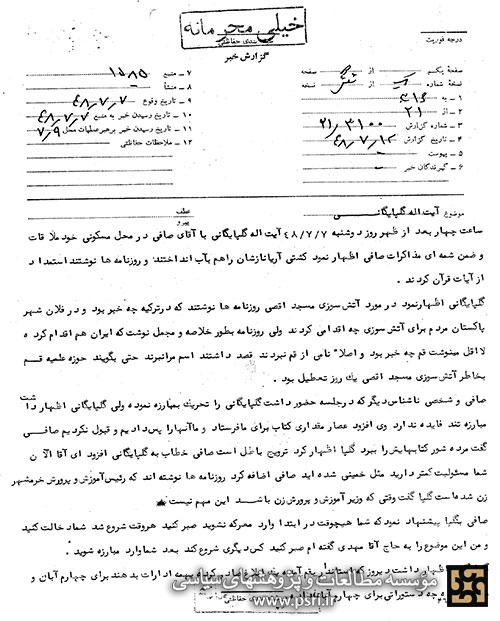 خیلی محرمانه
طبقه بندی حفاظتی
درجه فوریت
گزارش خبر
صفحه یکم از صفحه
نسخه شماره از نسخه
۱ ـ به ۳۱۶
۲ ـ از ۲۱
۳ ـ شماره گزارش ۲۱/۳۱۰۰
۴ ـ تاریخ گزارش ۴۸/۷/۱۲
۵ ـ پیوست
۶ ـ گیرندگان خبر
۷ ـ منبع ۱۵۸۵
۸ ـ منشأ
۹ ـ تاریخ وقوع ۴۸/۷/۷
۱۰ ـ تاریخ رسیدن خبر به منبع ۴۸/۷/۷
۱۱ ـ تاریخ رسیدن خبر برهبرعملیات محل ۷/۹
۱۲ ـ ملاحظات حفاظتی
موضوع آیت اله گلپایگانی
عطف
پیرو
ساعت چهار بعد از ظهر روز دوشنبه ۴۸/۷/۷ آیت اله گلپایگانی با آقای صافی در محل مسکونی خود ملاقات
و ضمن شمه ای مذاکرات صافی اظهار نمود کشتی آریا نازشان را هم بآب انداختند و روزنامه ها نوشتند استمداد
از آیات قرآن کردند .
گلپایگانی اظهار نمود در مورد آتش سوزی مسجد اقصی روزنامه ها نوشتند که در ترکیه چه خبر بود و در فلان شهر
پاکستان مردم برای آتش سوزی چه اقدامی کردند ولی روزنامه بطور خلاصه و مجمل نوشت که ایران هم اقدام کرده
لااقل مینوشت قم چه خبر بود و اصلاً نامی از قم نبردند قصد داشتند اسم مرا نبرند حتی بگویند حوزه علمیه قم
بخاطر آتش سوزی مسجد اقصی یک روز تعطیل بود .
صافی و شخصی ناشناس دیگر که در جلسه حضور داشت گلپایگانی را تحریک بمبارزه نموده ولی گلپایگانی اظهار داشت
مبارزه تند فایده ندارد وی افزود عصار مقداری کتاب برای ما فرستاد و ما آنها را پس دادیم و قبول نکردیم صافی
گفت مرده شور کتابهایش را ببرد گلپا اظهار کرد ترویج باطل است صافی خطاب به گلپایگانی افزود ای آقا الآن
شما مسئولیت کمتر دارید مثل خمینی شده اید صافی اضافه کرد روزنامه ها نوشته اند که رئیس آموزش و پرورش خرمشهر
زن شده است گلپا گفت وقتی که وزیر آموزش و پرورش زن باشد این مهم نیست
صافی بگلپا پیشنهاد نمود که شما هیچوقت در ابتدا وارد معرکه نشوید صبر کنید هر وقت شروع شد شما دخالت کنید
و من این موضوع را به حاج آقا مهدی گفته ام صبر کنید کس دیگری شروع کند بعد شما وارد مبارزه شوید .
اظهار داشت دیروز که استاندار بقم آمده بود ادارات بدهند برای چهارم آبان و
چه دستوراتی برای چهارم آبان
مؤسسه مطالعات و پژوهشهای سیاسی
www.psri.ir